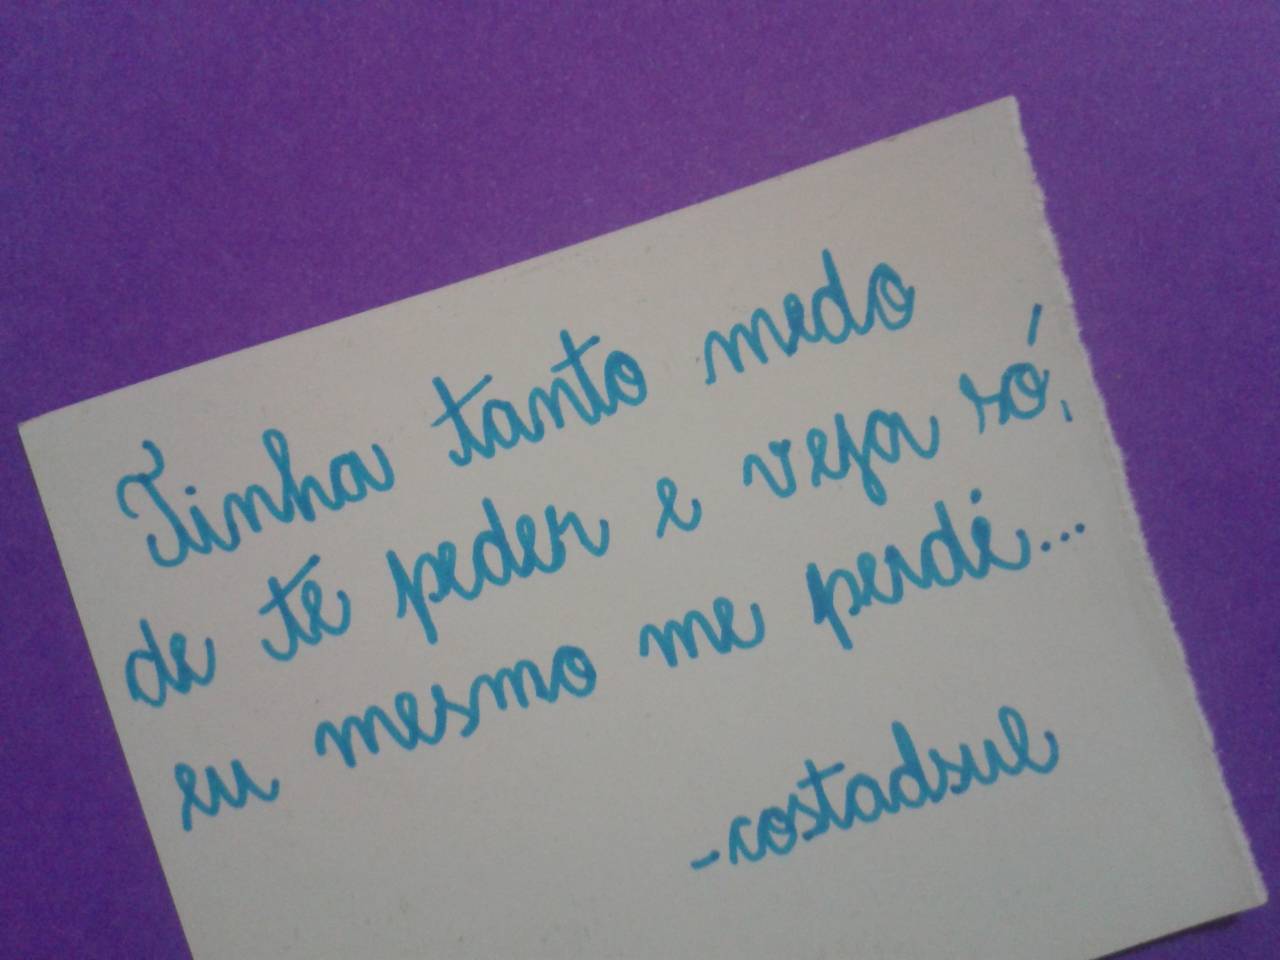 Tinha tanto medo
de te peder e veja só,
eu mesmo me perdi...
-costadsul